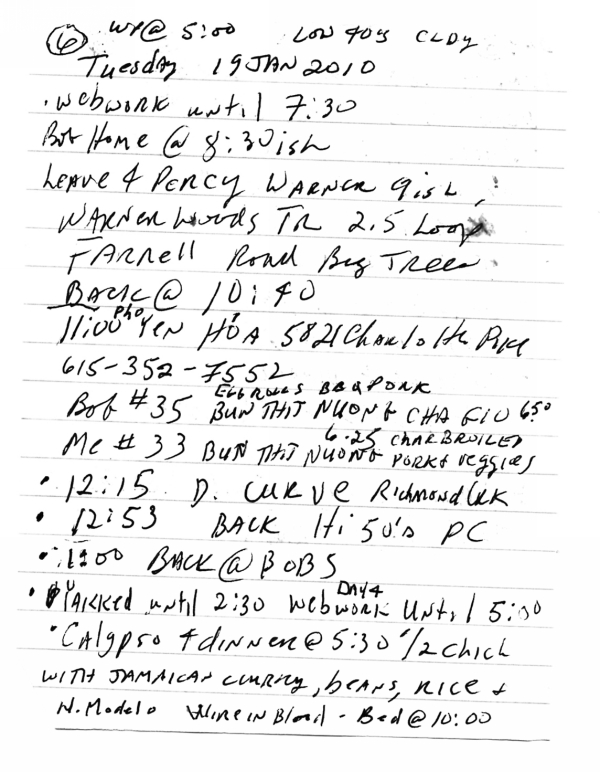 ⑥ WP@ 5:00 LOW 40s CLDy
Tuesday 19 JAN 2010
. Webwork until 7:30
Bob Home @ 8:30ish
LEAVE 4 PERCY WARNER 9ish,
WARNER Woods TR 2.5 Loop
FARNell Road Big Trees
BACK @ 10:40
11:00 Pho YEN HÓA 5821 Charlotte Pike
615-352-7552
EGGROLLS BBQ PORK
Bob #35 BUN THIT NUONG CHA GIO 6.50
6.25 CHARBROILED
Me # 33 BUN THIT NUONG PORK & Veggies
• 12:15 D. CURVE Richmond Crk
• 12:53 BACK Hi 50's PC
• 1:00 BACK @ BOBS
• YAKKED until 2:30 Webwork DAY 4 Until 5:00
• Calypso 4 dinner @ 5:30 1/2 chick
WITH JAMAICAN CURRY, beans, rice &
N. Modelo Wire in Blood - Bed @ 10:00